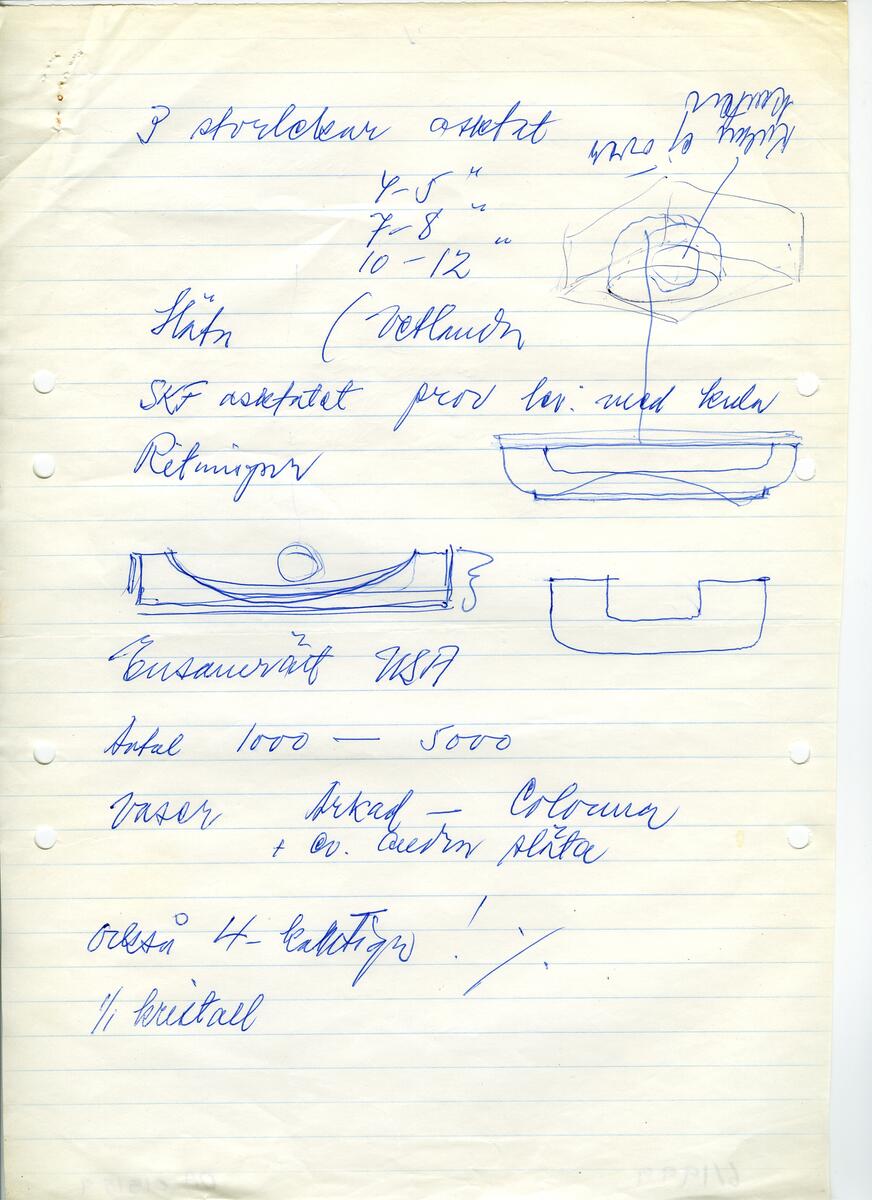 3 storlekar askfat
4-5 "
7-8 "
10-12 "
Kulan ej över
kanten
Släta (Vetlanda
SKF askfatet prov lev. med kula
Ritningar
Ensamrätt USA
Antal 1000 — 5000
Vaser Arkad — Colonna
+ ev. andra släta
också 4-kantiga ! ./.
1/1 kristall